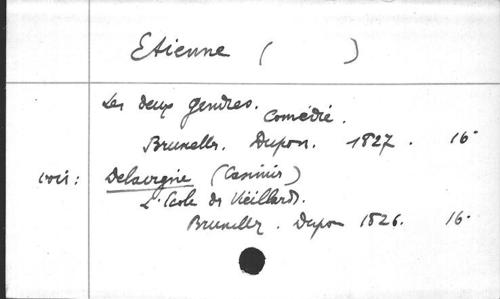 Etienne ( )
Les deux gendres.
Comédie.
Bruxelles. Dupon. 1827. 16°
voir: Delavigne (Casimir)
L'Ecole des Vieillards.
Bruxelles. Dupon 1826. 16°